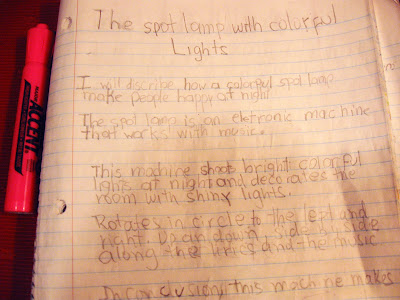 ACCENT
The spot lamp with colorful
Lights
I will discribe how a colorful spot lamp
make people happy at night
The spot lamp is an eletronic machine
that works with music.
This machine shoots bright colorful
lights at night and decorates the
room with shiny lights.
Rotates in circle to the left and
right. Up an down, side by side
along the lirics and the music
In conclusion, this machine makes